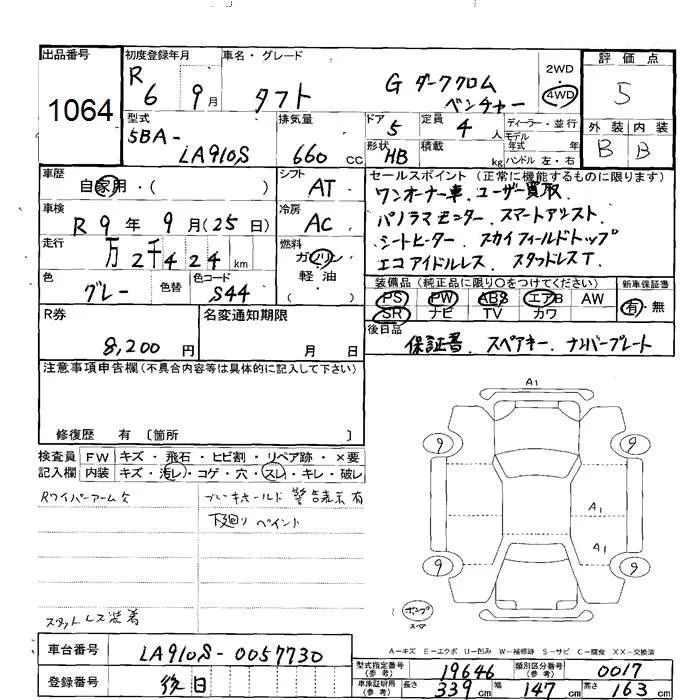 出品番号
1064
初度登録年月
R 6 9月
車名・グレード
タフト
G ダーククロム
ベンチャー
2WD
4WD
評価点
5
外装 内装
B B
型式
5BA-
LA910S
排気量
660 cc
ドア
5
定員
4 人
ディーラー・並行
モデル
年式 年
形状
HB
積載
kg
ハンドル 左・右
車歴
自家用・( )
シフト
AT
車検
R 9年 9月(25日)
冷房
AC
走行
万2千424km
燃料
ガソリン
軽油
( )
色
グレー
色替
色コード
S44
セールスポイント (正常に機能するものに限ります)
ワンオーナー車、ユーザー買取、
パノラマモニター、スマートアシスト、
シートヒーター、スカイフィールドトップ
エコアイドルレス、スタッドレスT、
装備品(純正品に限り○をつけてください)
PS PW ABS エアB AW
SR ナビ TV カワ
新車保証書
有・無
後日品
保証書、スペアキー、ナンバープレート
R券
8,200円
名変通知期限
月 日
注意事項申告欄(不具合内容等は具体的に記入して下さい)
修復歴 有 〔箇所 〕
検査員
記入欄
FW キズ・飛石・ヒビ割・リペア跡・×要
内装 キズ・汚レ・コゲ・穴・スレ・キレ・破レ
Rワイパーアーム
警告表示有
下廻り ペイント
スタットレス装着
A1
9
9
A1
A1
9
9
A-キズ E-エクボ U-凹み W-補修跡 S-サビ C-腐食 XX-交換済
車台番号
LA910S-0057730
登録番号
後日
型式指定番号
(参考)
19646
類別区分番号
(参考)
0017
車庫証明用
(参考)
長さ 339cm 幅 147cm 高さ 163cm